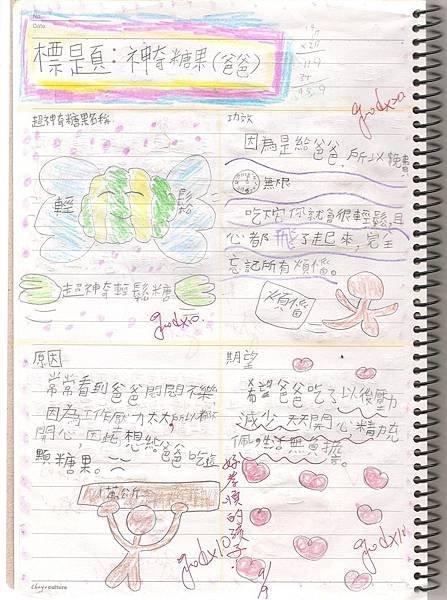 No.
Date
標是頁：神奇糖果(爸爸)
good x20
超神奇糖果名稱
輕鬆
超神奇輕鬆糖
good x10
功效
因為是給爸爸，所以免費
無限
吃於你就會很輕鬆，且
心都飛了起來，完全
忘記所有煩惱。
煩惱
原因
常常看到爸爸悶悶不樂
因為工作壓力太大所以
開心，因此，想給爸爸吃這
顆糖果。
萬公斤
good x10
期望
希望爸爸吃了以後壓力
減少，天天開心精力充
沛，生活無負擔。
好孝順的孩子！
good x10
9/9